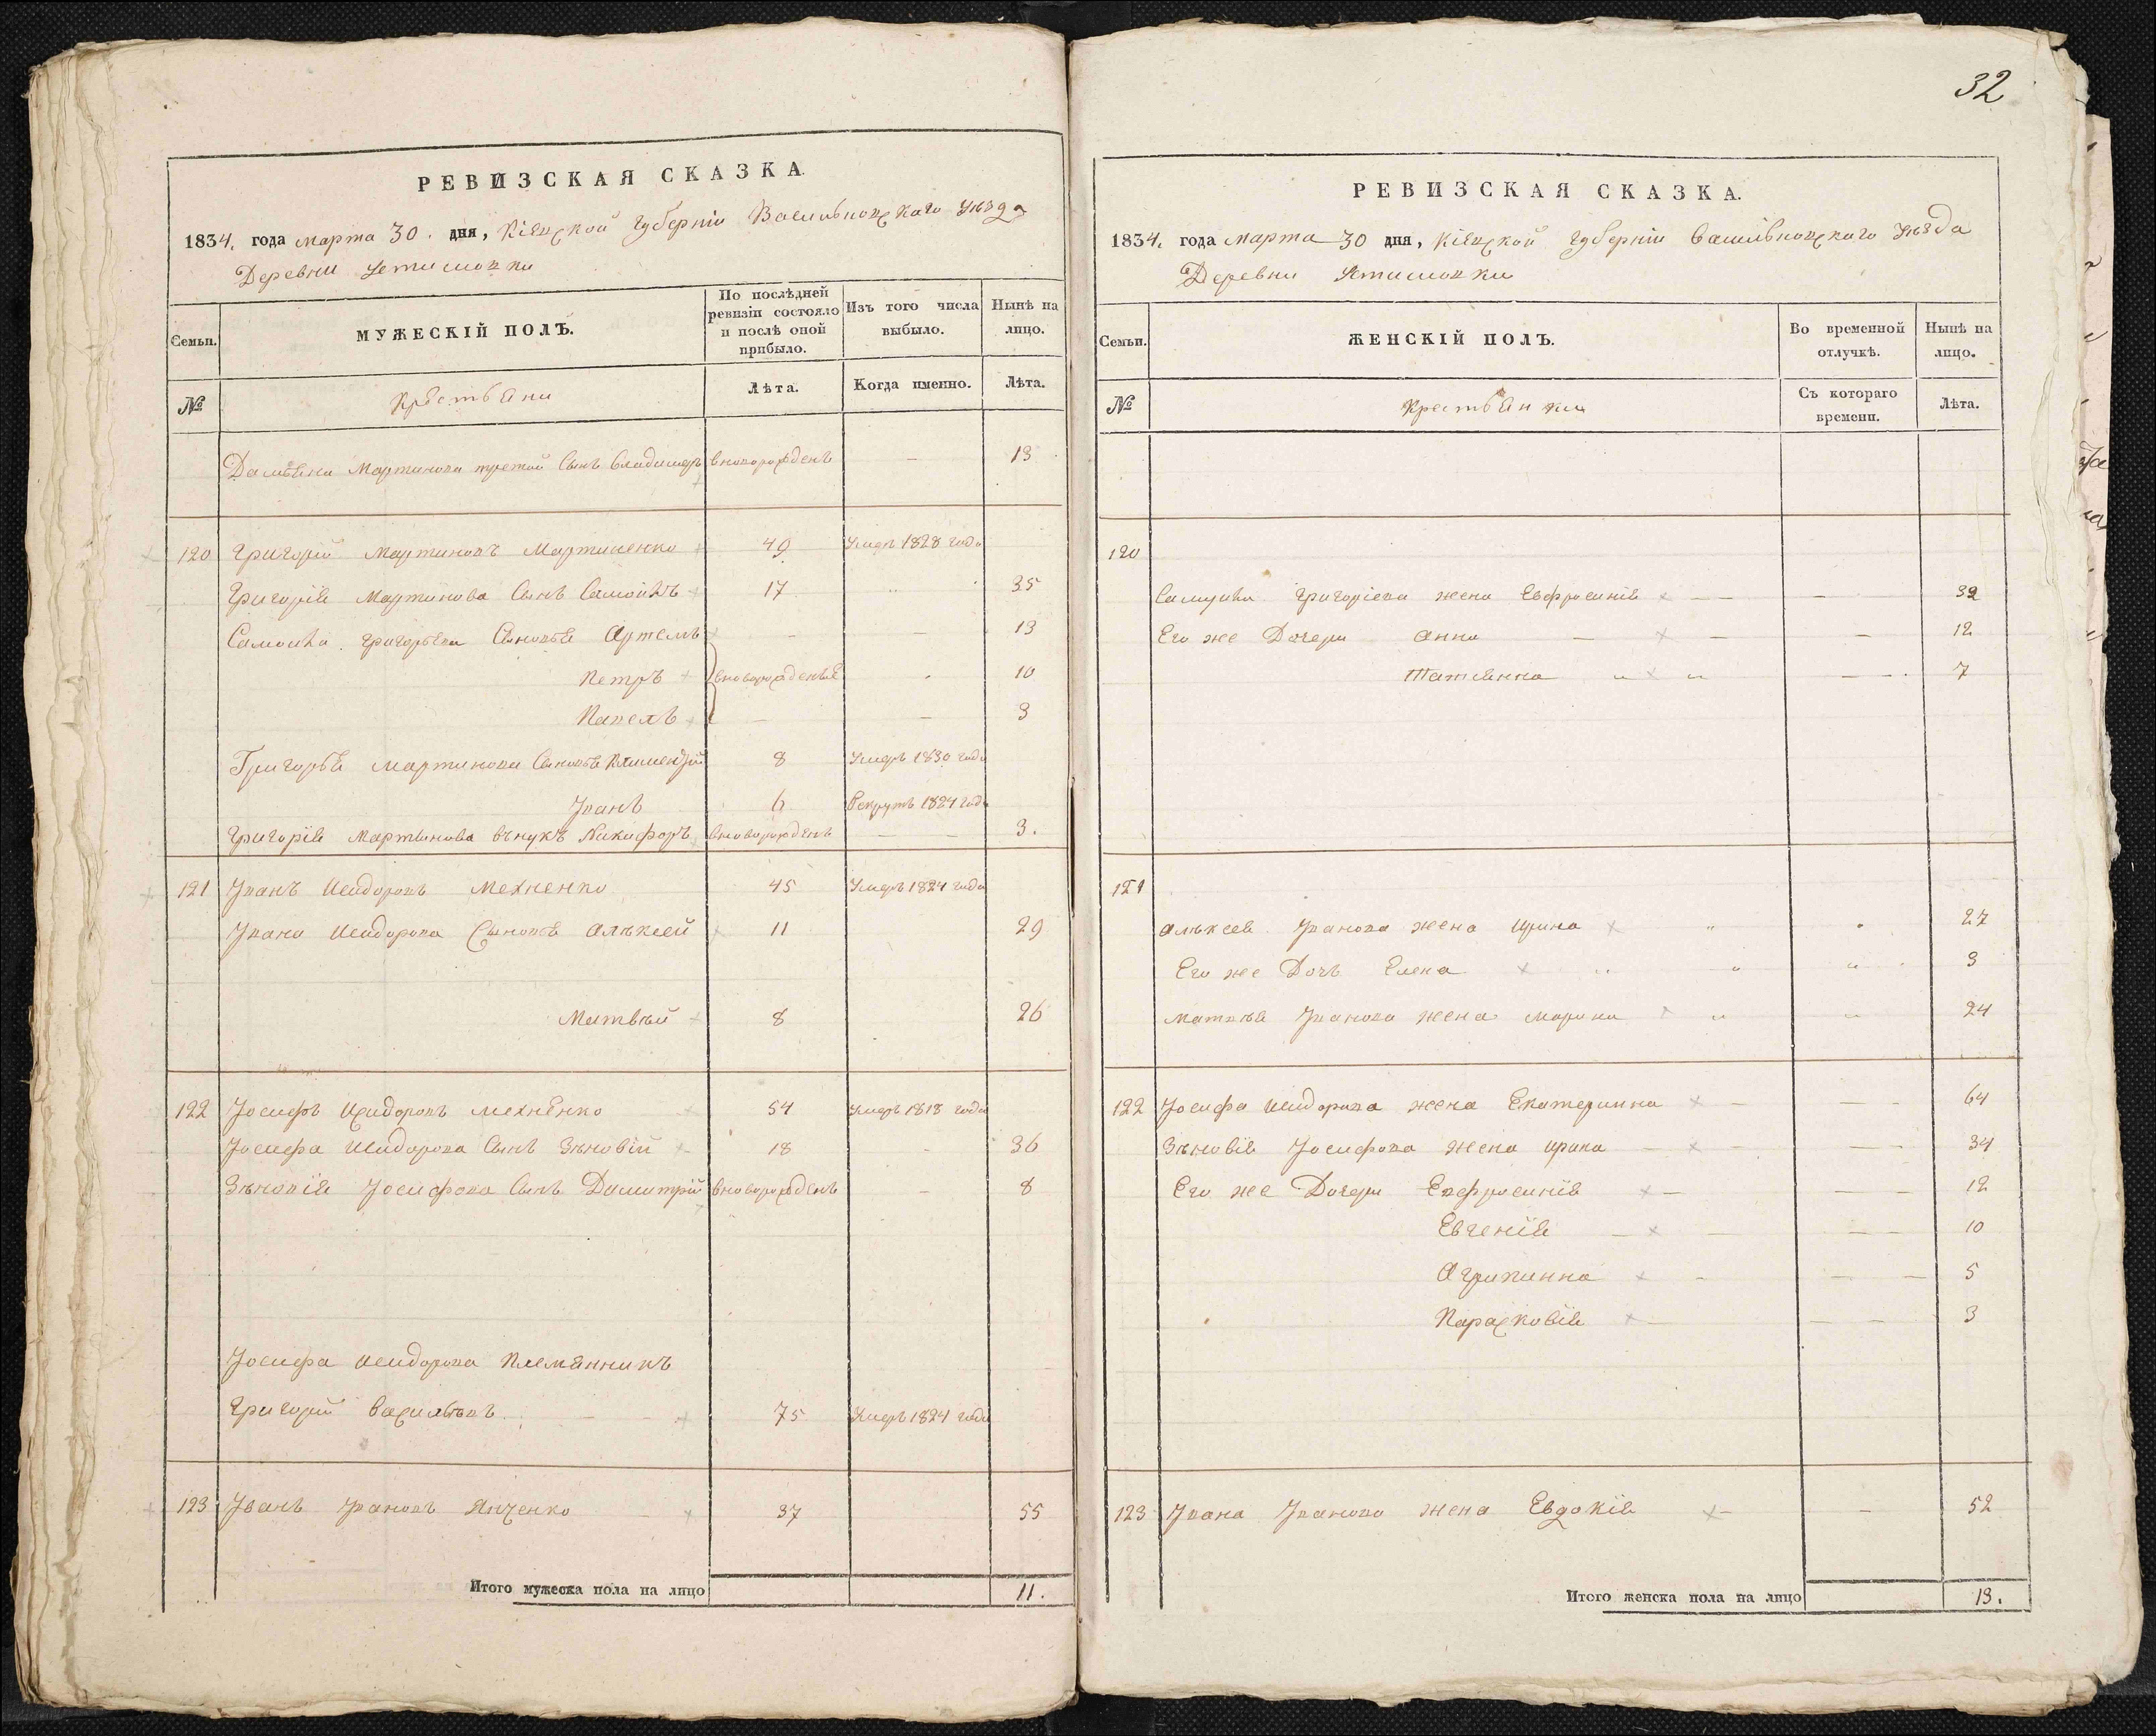 РЕВИЗСКАЯ СКАЗКА.
1834. года марта 30. дня, Кіевской Губерніи Васильковскаго Уѣзда
Деревни Устимовки
Семьи.
МУЖЕСКІЙ ПОЛЪ.
По послѣдней ревизіи состояло и послѣ оной прибыло.
Изъ того числа выбыло.
Нынѣ на лицо.
№
Крестьяни
Лѣта.
Когда именно.
Лѣта.
Дамьяна Мартинова третой Сынъ Владимеръ вноворожденъ — 13
120 Григорій Мартиновъ Мартиненко 49 Умеръ 1828 года
Григорія Мартинова Сынъ Самоилъ 17 35
Самоила Григорьева Сыновья Артемъ — — 13
Петръ вноворожденые 10
Павелъ — — 3
Григорья Мартинова Сыновья Климентій 8 Умеръ 1830 года
Иванъ 6 Рекрутъ 1824 года
Григорія Мартинова внукъ Никифоръ вноворожденъ — — 3.
121 Иванъ Исидоровъ Мехненко 45 Умеръ 1824 года
Ивана Исидорова Сыновья Алѣксей 11 29
Матвѣй 8 26
122 Іосифъ Исидоровъ Мехненко 54 Умеръ 1818 года
Іосифа Исидорова Сынъ Зѣновій 18 - 36
Зѣновія Іосифова Сынъ Димитрій вноворожденъ — 8
Іосифа Исидорова Племянникъ
Григорій Васильевъ 75 Умеръ 1824 года
123 Иванъ Ивановъ Янченко 37 55
Итого мужеска пола на лицо 11.
32
РЕВИЗСКАЯ СКАЗКА.
1834. года марта 30 дня, Кіевской Губерніи Васильковскаго Уѣзда
Деревни Устимовки
Семьи.
ЖЕНСКІЙ ПОЛЪ.
Во временной отлучкѣ.
Нынѣ на лицо.
№
Крестьянки
Съ котораго времени.
Лѣта.
120
Самуила Григоріева жена Евфросинія — — — 32
Его же Дочери Анна — — — 12
Татіянна — — 7
121
Алѣксея Иванова жена Ирина 27
Его же Дочь Елена 3
Матвѣя Иванова жена Марина 24
122 Іосифа Исидорова жена Екатеринна — — — 64
Зѣновія Іосифова жена Ирина — — — — 34
Его же Дочери Евфросинія — — — 12
Евгенія — — — — 10
Агрипинна - — — 5
Парасковія — — — 3
123 Ивана Иванова жена Евдокія — — 52
Итого женска пола на лицо 13.